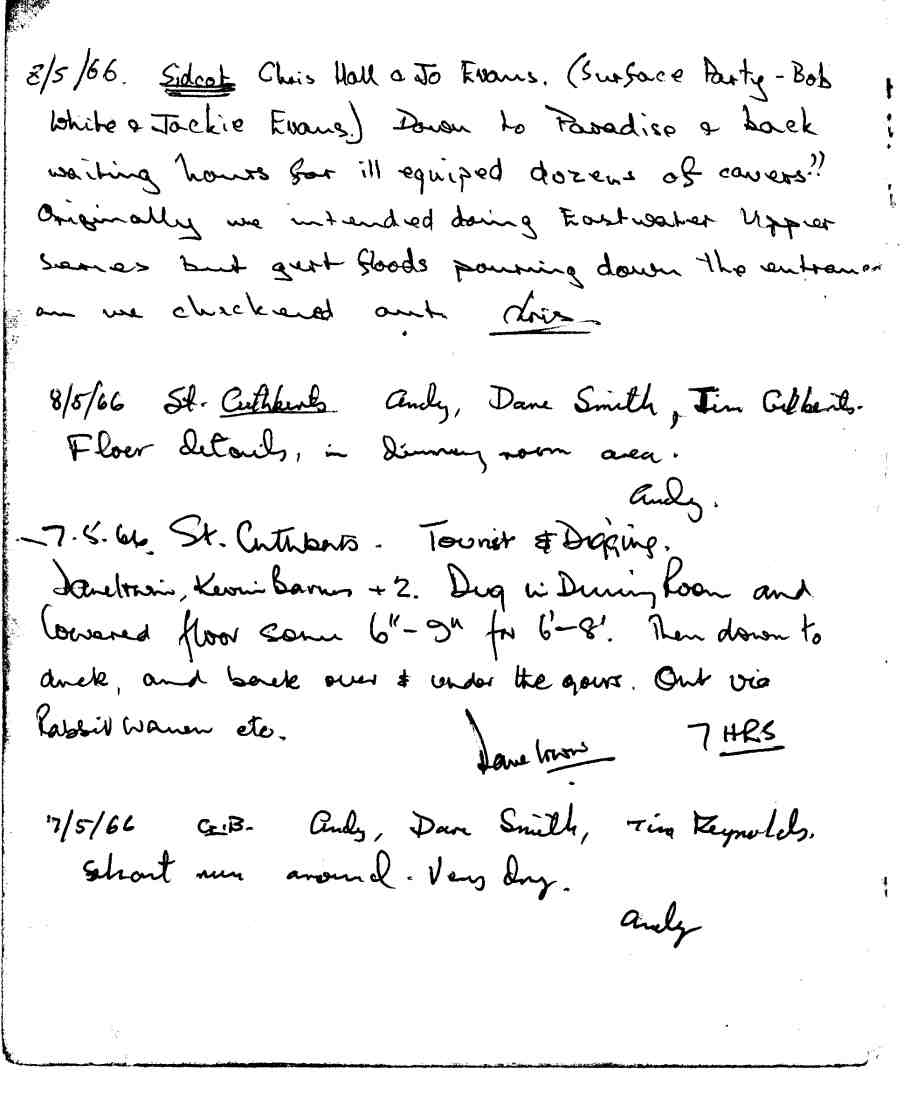 8/5/66. Sidcot Chris Hall & Jo Evans. (Surface Party - Bob
White & Jackie Evans.) Down to Paradise & back
waiting hours for ill equiped dozens of cavers!!
Originally we intended doing Eastwater Upper
Series but gurt floods pouring down the entrance
we chickened out. Chris
8/5/66 St. Cuthberts Andy, Dave Smith, Tim Gilberts.
Floor details, in dinning room area.
Andy.
7.5.66. St. Cuthberts. Tourist & Digging.
Dave Irwin, Kevin Barnes + 2. Dug in Dining Room and
lowered floor some 6" - 9" for 6' - 8'. Then down to
duck, and back over & under the gours. Out via
Rabbit Warren etc.
Dave Irwin 7 HRS
7/5/66 G.B. Andy, Dave Smith, Tim Reynolds.
Short run around. Very dry.
Andy